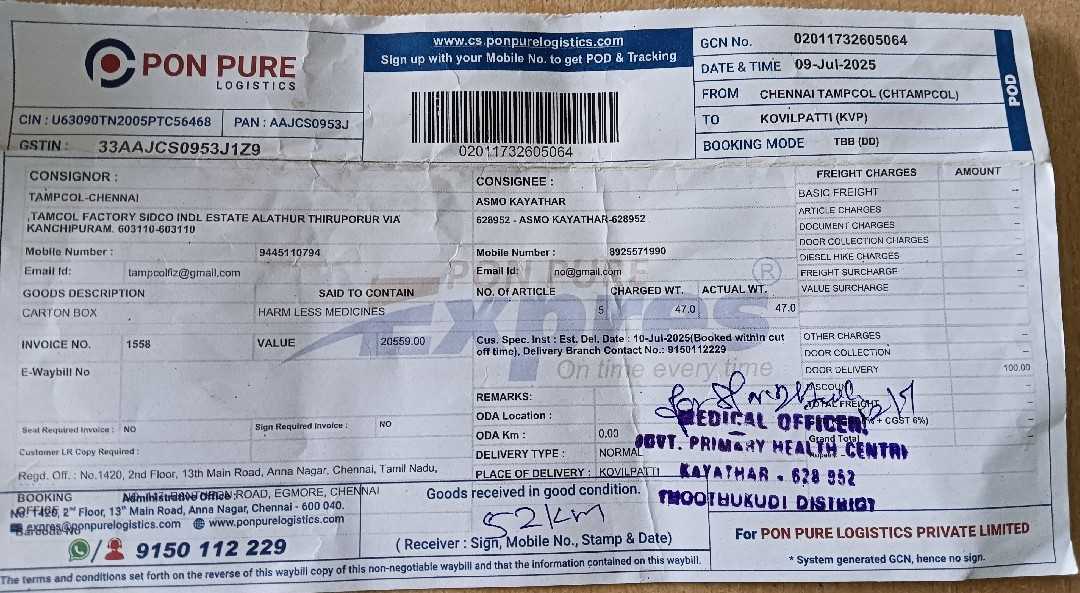 PON PURE
LOGISTICS
CIN : U63090TN2005PTC56468 PAN : AAJCS0953J
GSTIN : 33AAJCS0953J1Z9
www.cs.ponpurelogistics.com
Sign up with your Mobile No. to get POD & Tracking
02011732605064
GCN No. 02011732605064
DATE & TIME 09-Jul-2025
FROM CHENNAI TAMPCOL (CHTAMPCOL)
TO KOVILPATTI (KVP)
BOOKING MODE TBB (DD)
POD
CONSIGNOR :
TAMPCOL-CHENNAI
,TAMCOL FACTORY SIDCO INDL ESTATE ALATHUR THIRUPORUR VIA
KANCHIPURAM. 603110-603110
Mobile Number : 9445110794
Email Id: tampcolfiz@gmail.com
CONSIGNEE :
ASMO KAYATHAR
628952 - ASMO KAYATHAR-628952
Mobile Number : 8925571990
Email Id: no@gmail.com
GOODS DESCRIPTION SAID TO CONTAIN
CARTON BOX HARM LESS MEDICINES
NO. Of ARTICLE CHARGED WT. ACTUAL WT.
5 47.0 47.0
INVOICE NO. 1558 VALUE 20559.00
E-Waybill No
Cus. Spec. Inst : Est. Del. Date : 10-Jul-2025(Booked within cut
off time), Delivery Branch Contact No.: 9150112229
PON PURE
Expres ®
On time every time
REMARKS:
ODA Location :
ODA Km : 0.00
DELIVERY TYPE : NORMAL
PLACE OF DELIVERY : KOVILPATTI
Seal Required Invoice : NO Sign Required Invoice : NO
Customer LR Copy Required :
FREIGHT CHARGES AMOUNT
BASIC FREIGHT –
ARTICLE CHARGES –
DOCUMENT CHARGES –
DOOR COLLECTION CHARGES –
DIESEL HIKE CHARGES –
FREIGHT SURCHARGE –
VALUE SURCHARGE –
OTHER CHARGES –
DOOR COLLECTION –
DOOR DELIVERY 100.00
DISCOUNT –
TOTAL FREIGHT –
+ CGST 6%)
Grand Total
MEDICAL OFFICER
GOVT. PRIMARY HEALTH CENTRE
KAYATHAR - 628 952
THOOTHUKUDI DISTRICT
Regd. Off. : No.1420, 2nd Floor, 13th Main Road, Anna Nagar, Chennai, Tamil Nadu,
BOOKING
OFFICE
Administrative Office:
ROAD, EGMORE, CHENNAI
No. 1420, 2nd Floor, 13th Main Road, Anna Nagar, Chennai - 600 040.
expres@ponpurelogistics.com www.ponpurelogistics.com
9150 112 229
Goods received in good condition.
52 Km
( Receiver : Sign, Mobile No., Stamp & Date)
For PON PURE LOGISTICS PRIVATE LIMITED
* System generated GCN, hence no sign.
The terms and conditions set forth on the reverse of this waybill copy of this non-negotiable waybill and that the information contained on this waybill.